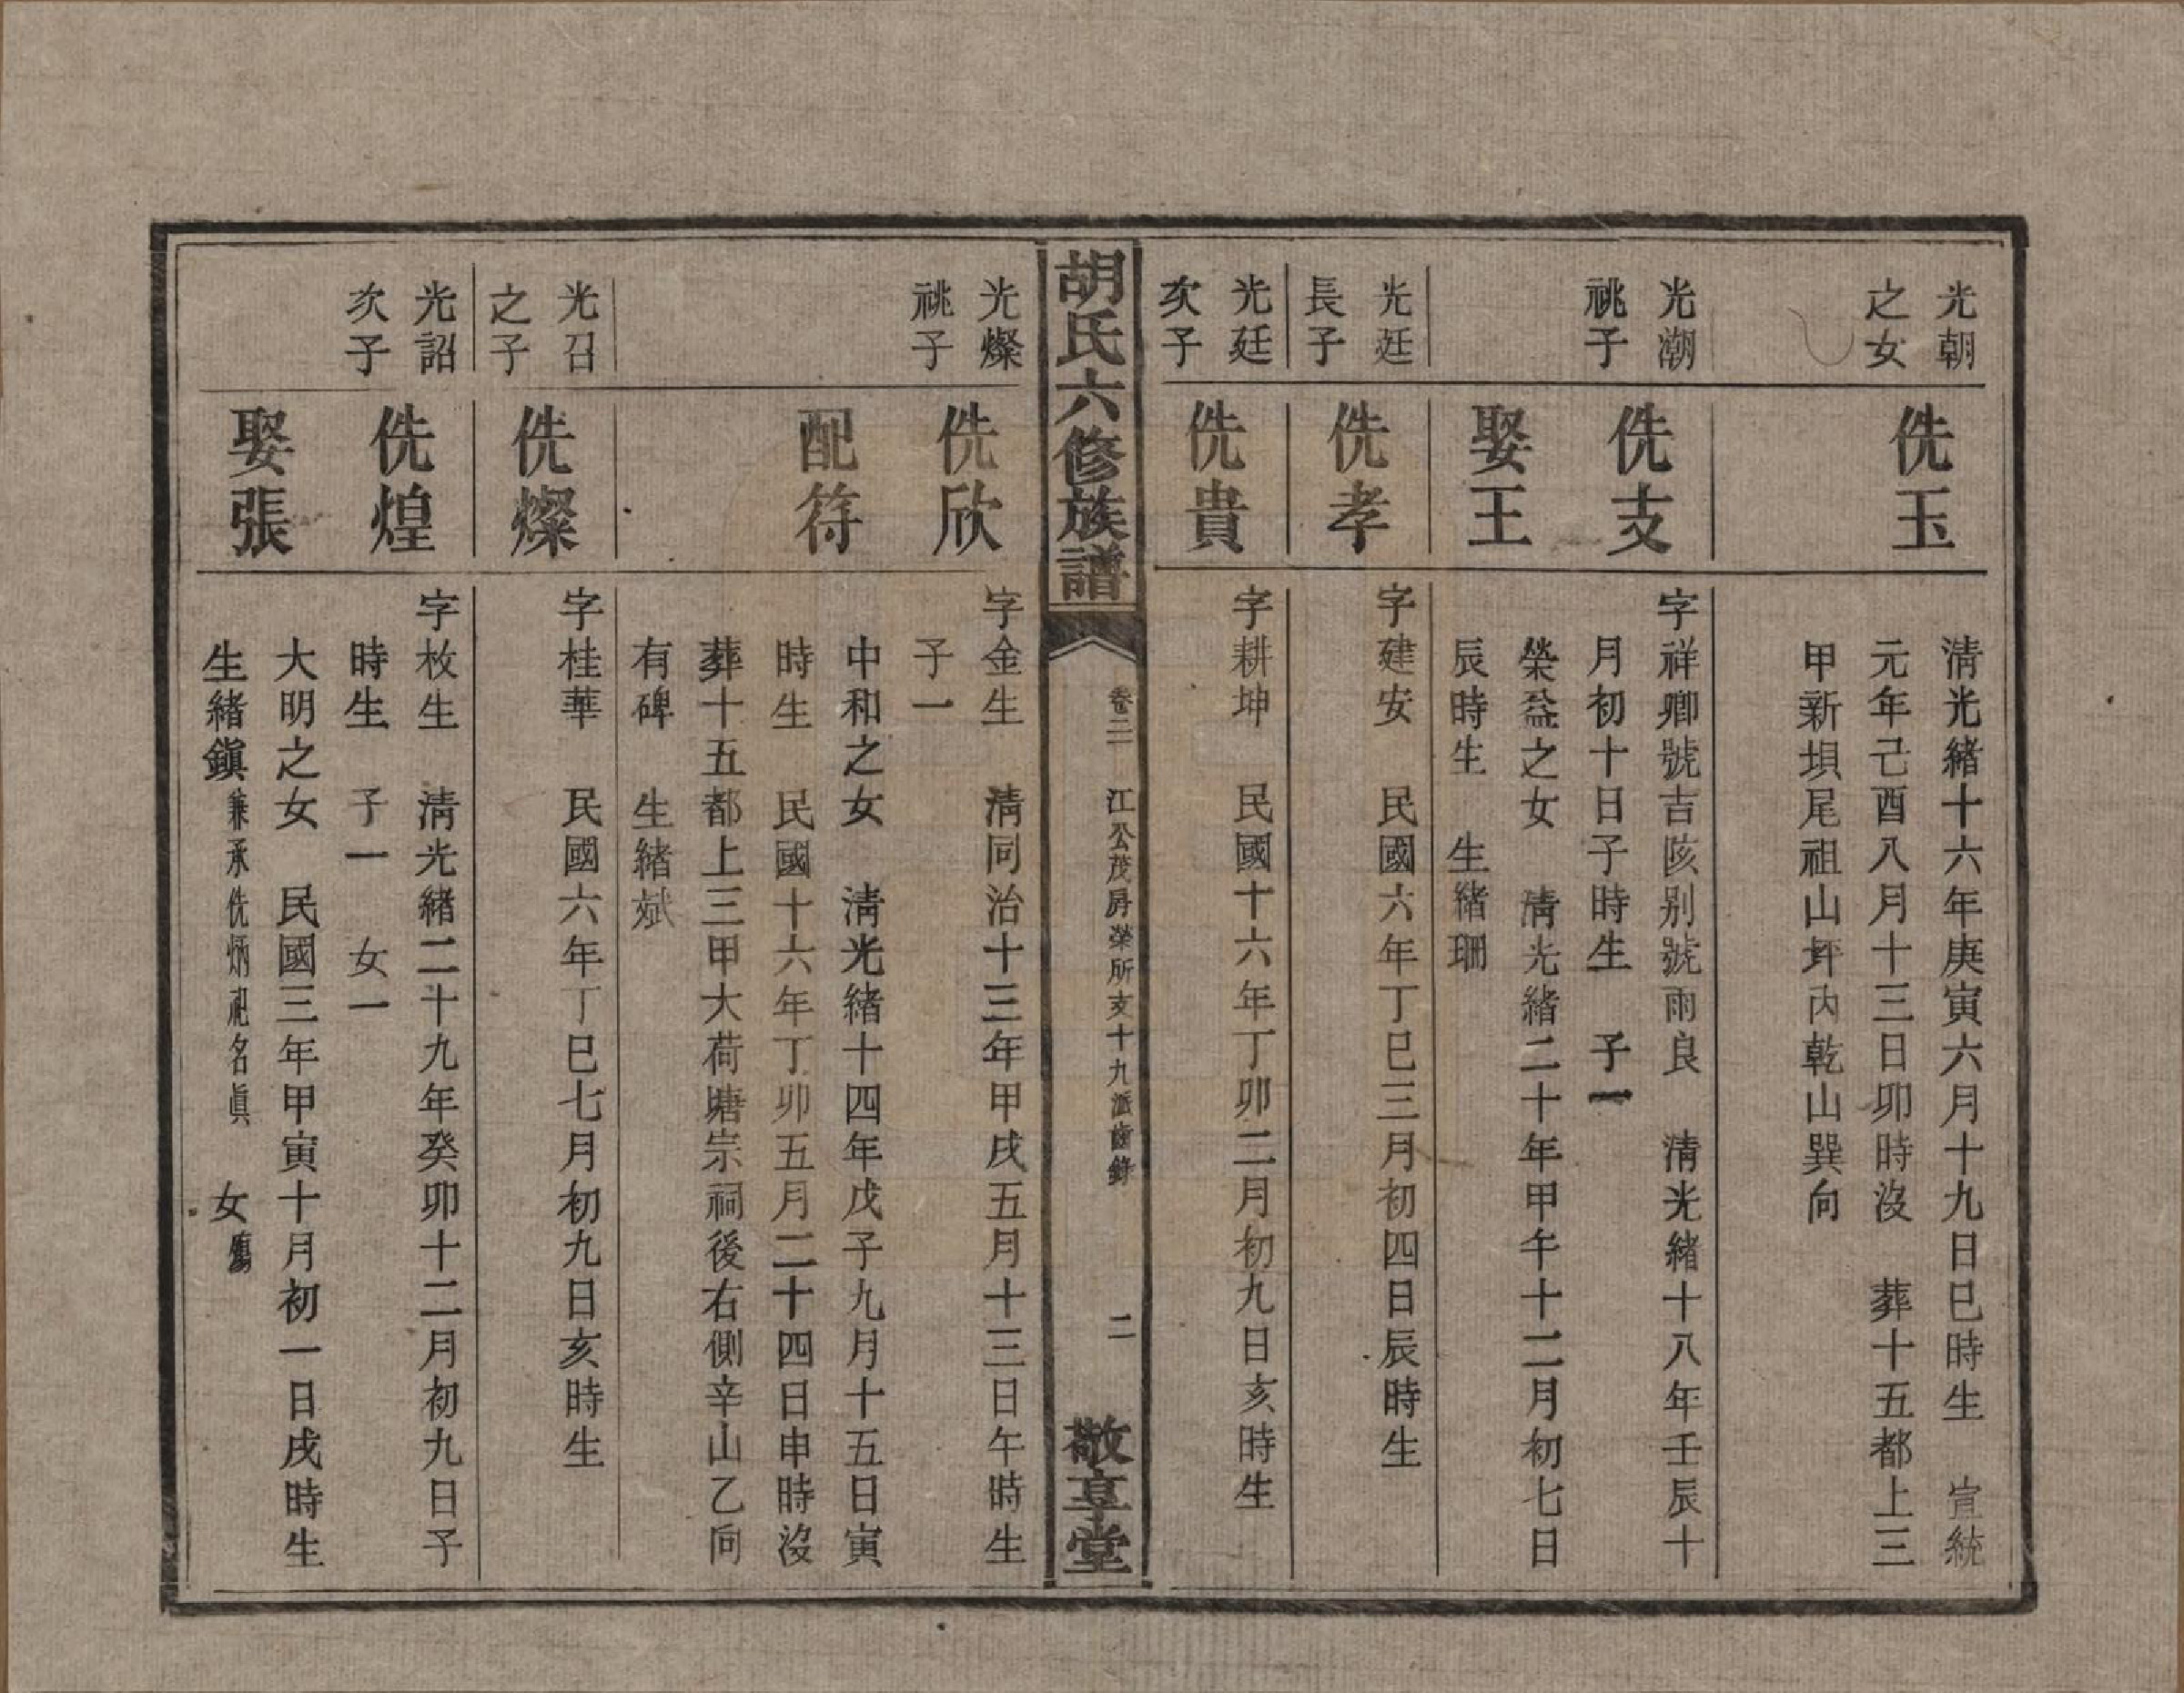 光朝
之女
侁玉
清光緒十六年庚寅六月十九日巳時生　宣統
元年己酉八月十三日卯時沒　葬十五都上三
甲新垻尾祖山坪內乾山巽向
光潮
祧子
侁支
字祥卿號吉陔别號雨良　清光緒十八年壬辰十
月初十日子時生　子一
娶王
榮益之女　清光緒二十年甲午十二月初七日
辰時生　生緒珊
光廷
長子
侁孝
字建安　民國六年丁巳三月初四日辰時生
光廷
次子
侁貴
字耕坤　民國十六年丁卯二月初九日亥時生
胡氏六修族譜
卷二　江公茂房榮所支十九派齒錄
二
敬享堂
光燦
祧子
侁欣
字金生　清同治十三年甲戌五月十三日午時生
子一
配符
中和之女　清光緒十四年戊子九月十五日寅
時生　民國十六年丁卯五月二十四日申時沒
葬十五都上三甲大荷塘宗祠後右側辛山乙向
有碑　生緒斌
光召
之子
侁燦
字桂華　民國六年丁巳七月初九日亥時生
光詔
次子
侁煌
字枚生　清光緒二十九年癸卯十二月初九日子
時生　子一　女一
娶張
大明之女　民國三年甲寅十月初一日戌時生
生緒鎭兼承侁炳祀名眞　女